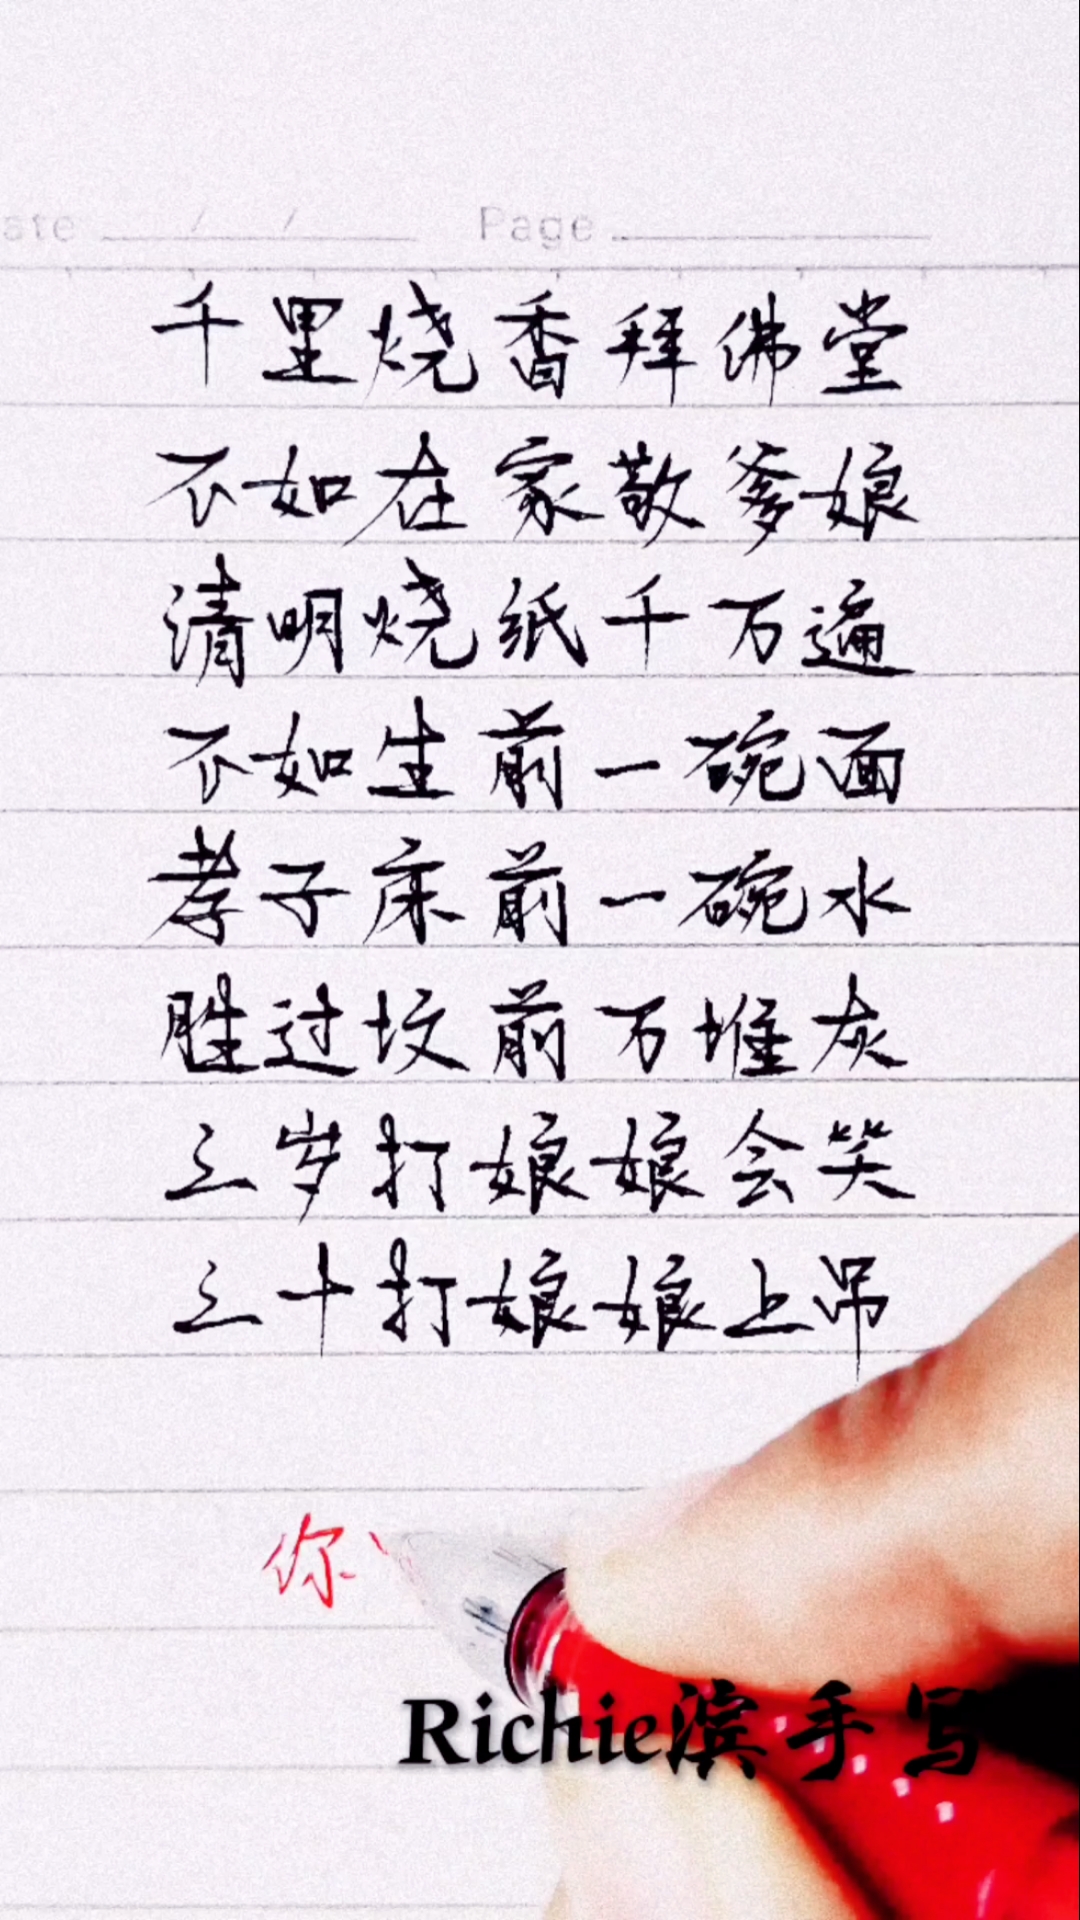 ate / / Page
千里烧香拜佛堂
不如在家敬爹娘
清明烧纸千万遍
不如生前一碗面
孝子床前一碗水
胜过坟前万堆灰
三岁打娘娘会笑
三十打娘娘上吊
你
Richie滨手写